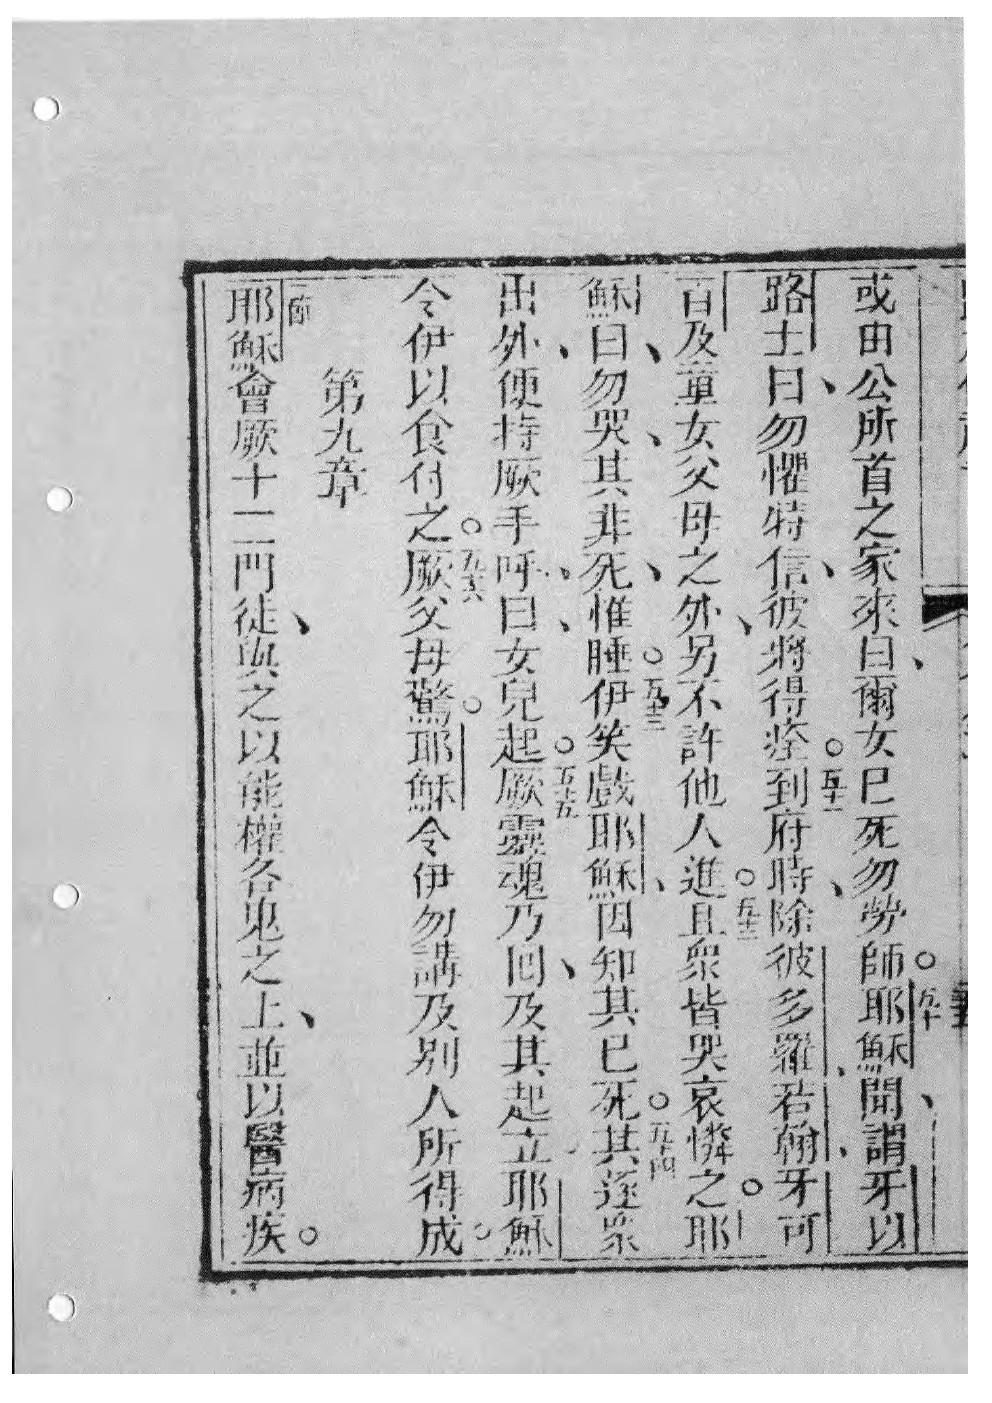 或由公所首之家來曰爾女已死勿勞師。五十耶穌聞謂牙以
路士曰勿懼特信彼將得痊。五十一到府時除彼多羅若翰牙可
百及童女父母之外另不許他人進。五十二且眾皆哭哀憐之。耶
穌曰勿哭其非死惟睡。五十三伊笑戲耶穌因知其已死。五十四其逐眾
出外便持厥手呼曰女兒起。五十五厥靈魂乃囘及其起立耶穌
令伊以食付之。五十六厥父母驚。耶穌令伊勿講及別人所得成。
第九章
一節耶穌會厥十二門徒與之以能權各鬼之上並以醫病疾。